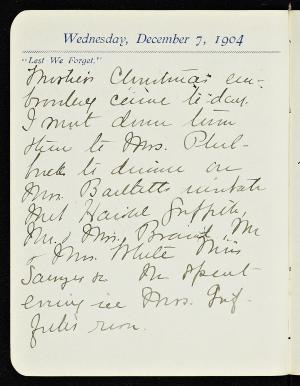 Wednesday, December 7, 1904
"Lest We Forget."
Mother's Christmas em-
broidery came to-day.
I went down town
then to Mrs. Phil-
brick to dinner on
Mrs. Bartlett's invitat
Met Harold Griffith,
Mr. Mrs. Brand, Mr
& Mrs. White Miss
Sawyer & Mr
evening Mrs. Grif-
room.